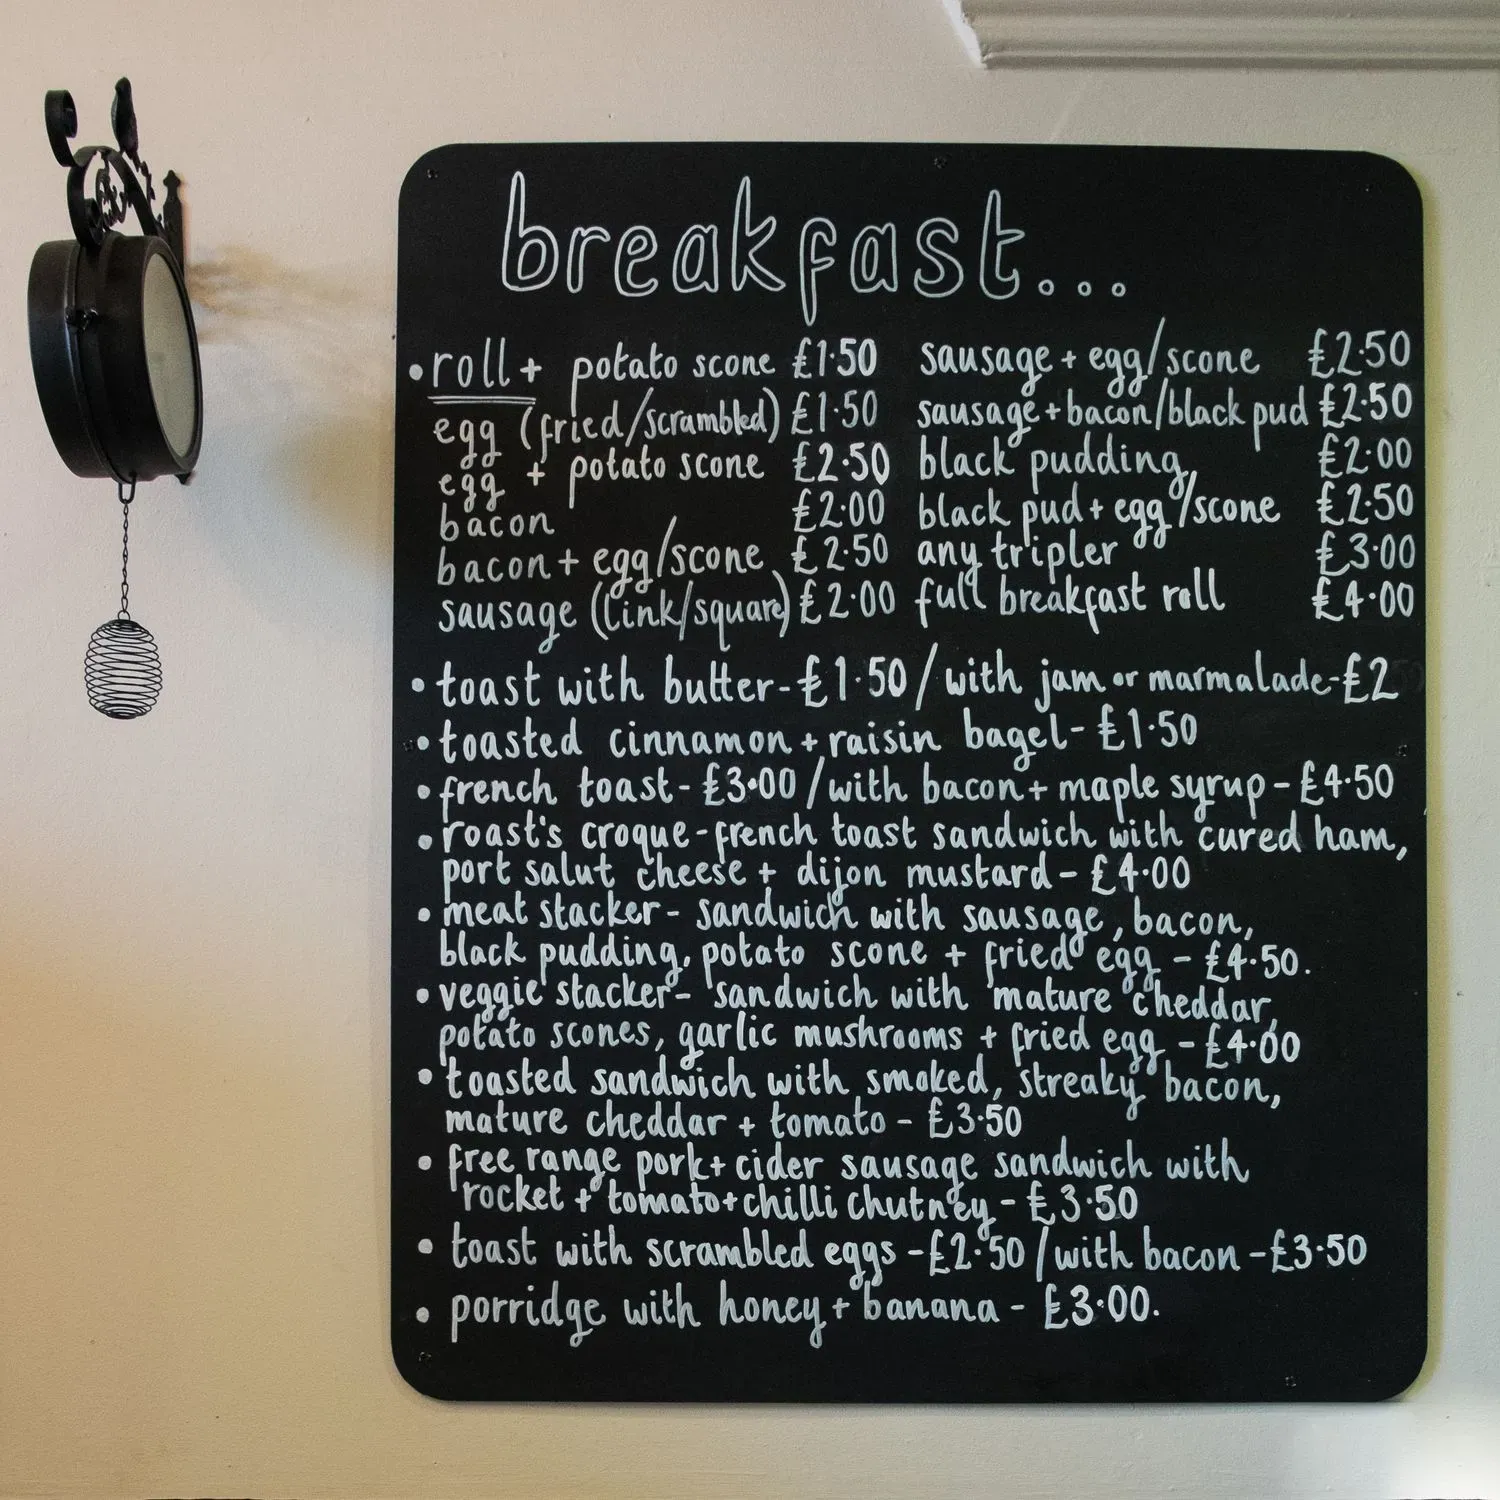 breakfast...
• roll + potato scone £1.50
egg (fried/scrambled) £1.50
egg + potato scone £2.50
bacon £2.00
bacon + egg/scone £2.50
sausage (link/square) £2.00
sausage + egg/scone £2.50
sausage + bacon/black pud £2.50
black pudding £2.00
black pud + egg/scone £2.50
any tripler £3.00
full breakfast roll £4.00
• toast with butter - £1.50 / with jam or marmalade - £2
• toasted cinnamon + raisin bagel - £1.50
• french toast - £3.00 / with bacon + maple syrup - £4.50
• roast's croque - french toast sandwich with cured ham,
port salut cheese + dijon mustard - £4.00
• meat stacker - sandwich with sausage, bacon,
black pudding, potato scone + fried egg - £4.50.
• veggie stacker - sandwich with mature cheddar,
potato scones, garlic mushrooms + fried egg - £4.00
• toasted sandwich with smoked, streaky bacon,
mature cheddar + tomato - £3.50
• free range pork + cider sausage sandwich with
rocket + tomato + chilli chutney - £3.50
• toast with scrambled eggs - £2.50 / with bacon - £3.50
• porridge with honey + banana - £3.00.